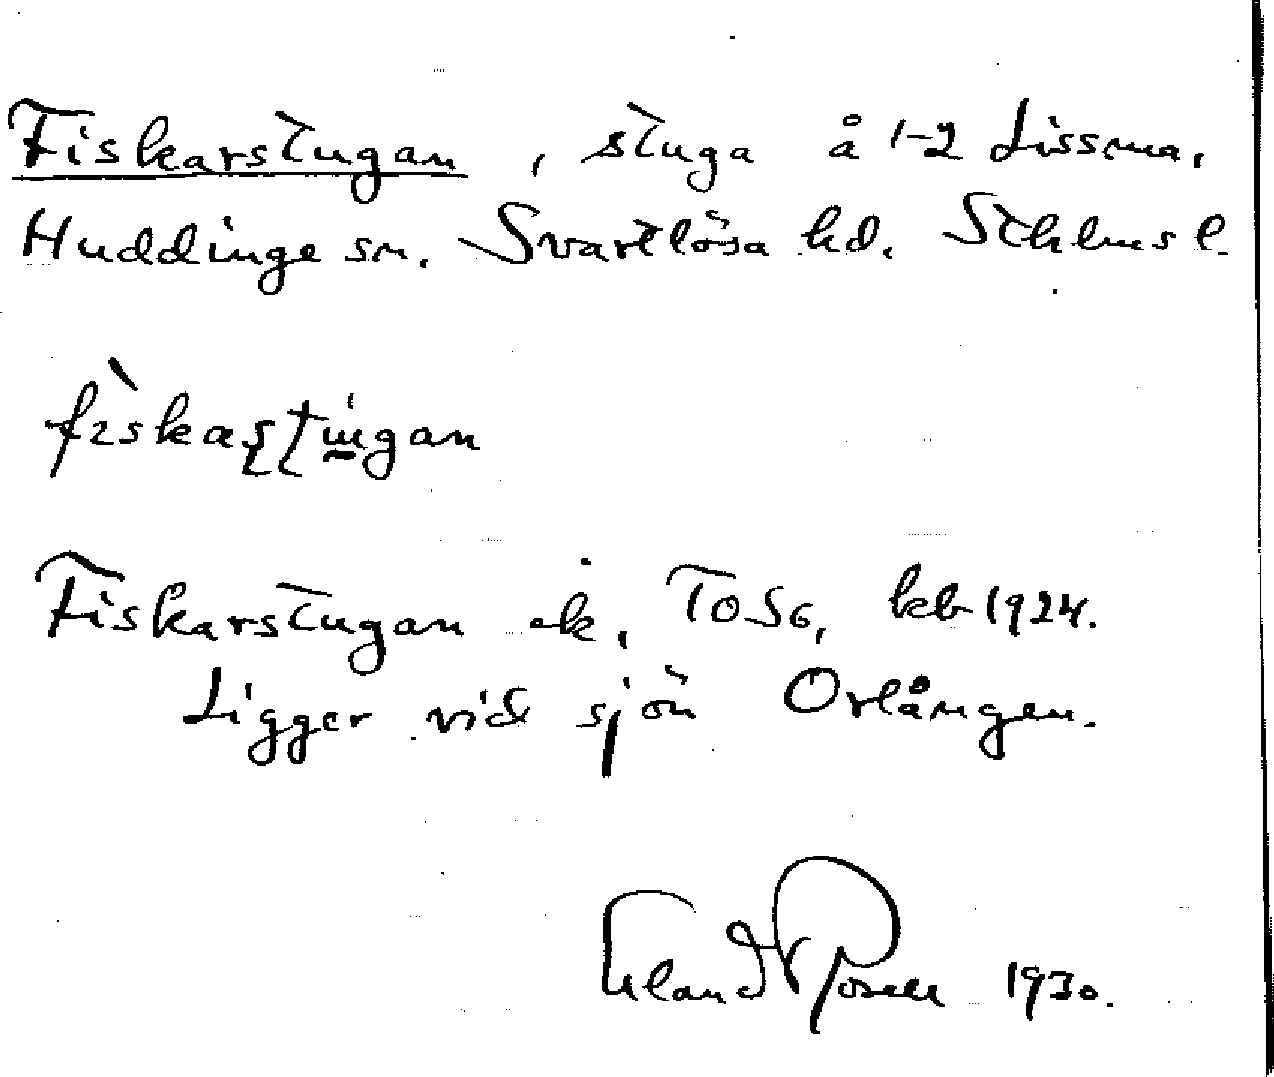 Fiskarstugan, stuga å 1-2 Lissma,
Huddinge sn. Svartlösa hd. Sthlms l.
Fiskarstugan ek, ToSG, kb 1924.
Ligger vid sjön Orlången.
Erland Rosell 1930.